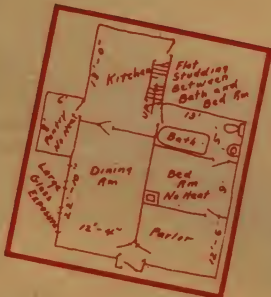 Kitchen
Flat
Studding
Between
Bath and
Bed Rm
UP
13'
6'
Pantry
No Heat
Bath
Large
Glass
Exposure
Dining
Rm
12'-4"
Bed
Rm
No Heat
Parlor